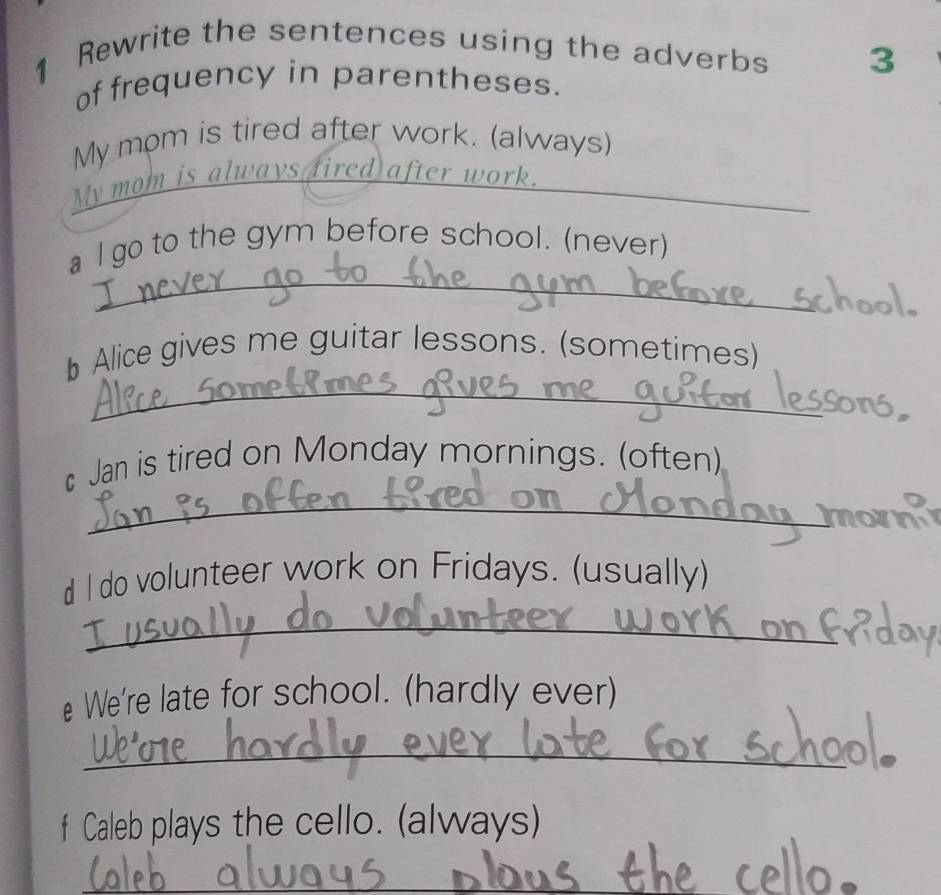 1 Rewrite the sentences using the adverbs
of frequency in parentheses.
3
My mom is tired after work. (always)
My mom is always tired after work.
a I go to the gym before school. (never)
I never go to the gym before school.
b Alice gives me guitar lessons. (sometimes)
Alice sometimes gives me guitar lessons.
c Jan is tired on Monday mornings. (often)
Jan is often tired on Monday
d I do volunteer work on Fridays. (usually)
I usually do volunteer work on friday
e We're late for school. (hardly ever)
We're hardly ever late for school.
f Caleb plays the cello. (always)
Caleb always plays the cello.